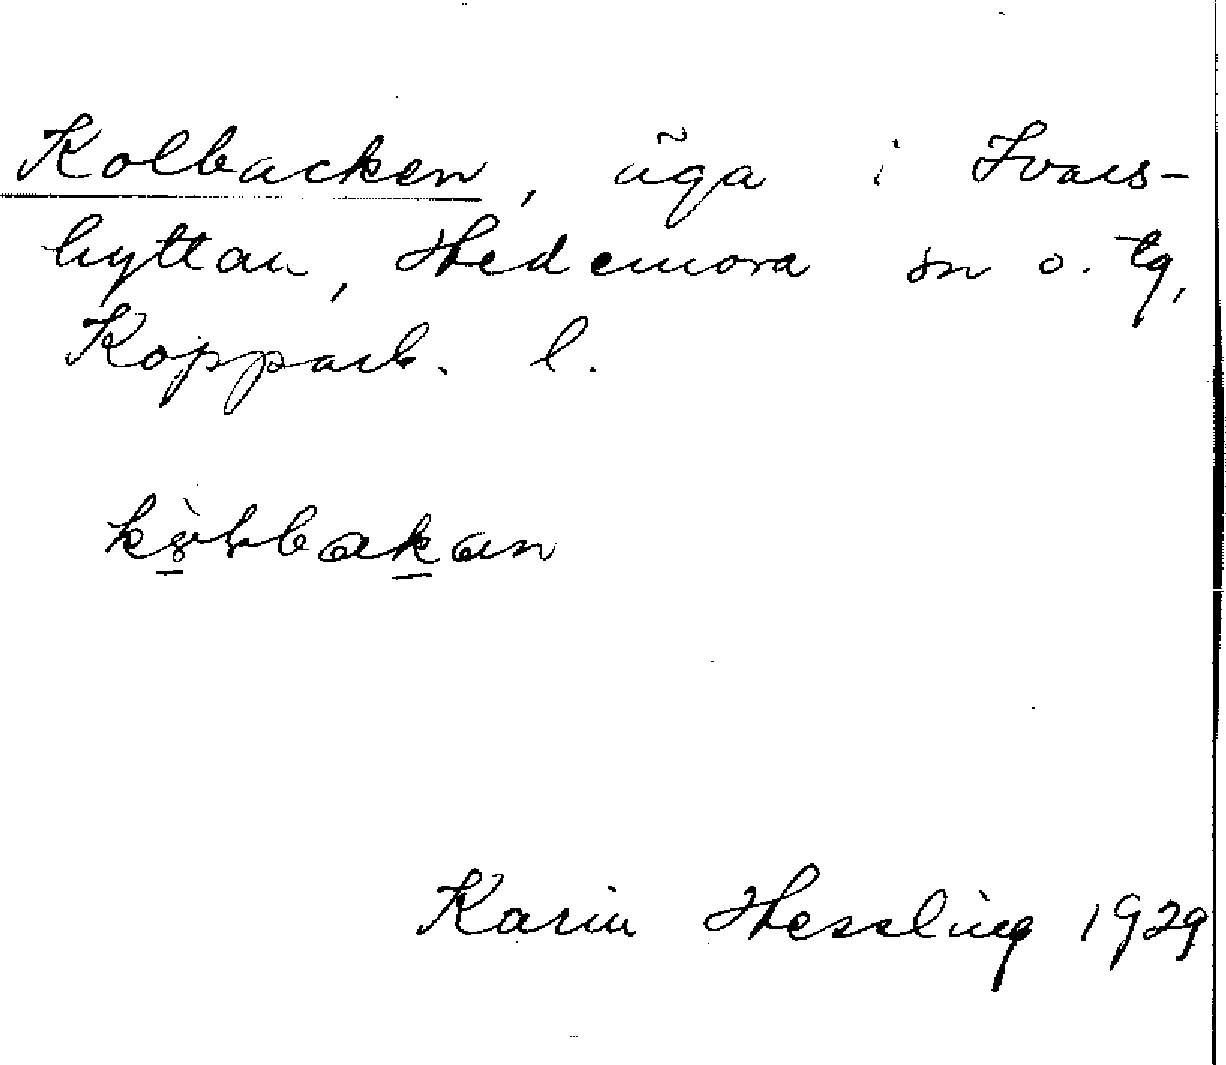 Kolbacken, äga i Ivars-
hyttan, Hedemora sn o. tg,
Kopparb. l.
Karin Hessling 1929